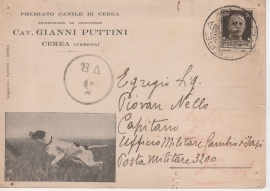 PREMIATO CANILE DI CEREA
CAV. GIANNI PUTTINI
CEREA (VERONA)
VR
Egregio Sig.
Piovan Nello
Capitano
Ufficio Militare Cambio e Tasi
Posta Militare 3200